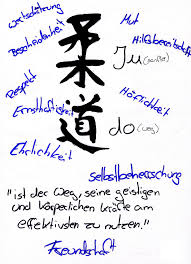 Wertschätzung
Mut
Bescheidenheit
Hilfsbereitschaft
柔
Ju (sanfte)
Respekt
Höflichkeit
Ernsthaftigkeit
道
do (weg)
Ehrlichkeit
Selbstbeherrschung
"ist der Weg, seine geistigen
und körperlichen Kräfte am
effektivsten zu nutzen."
Freundschaft